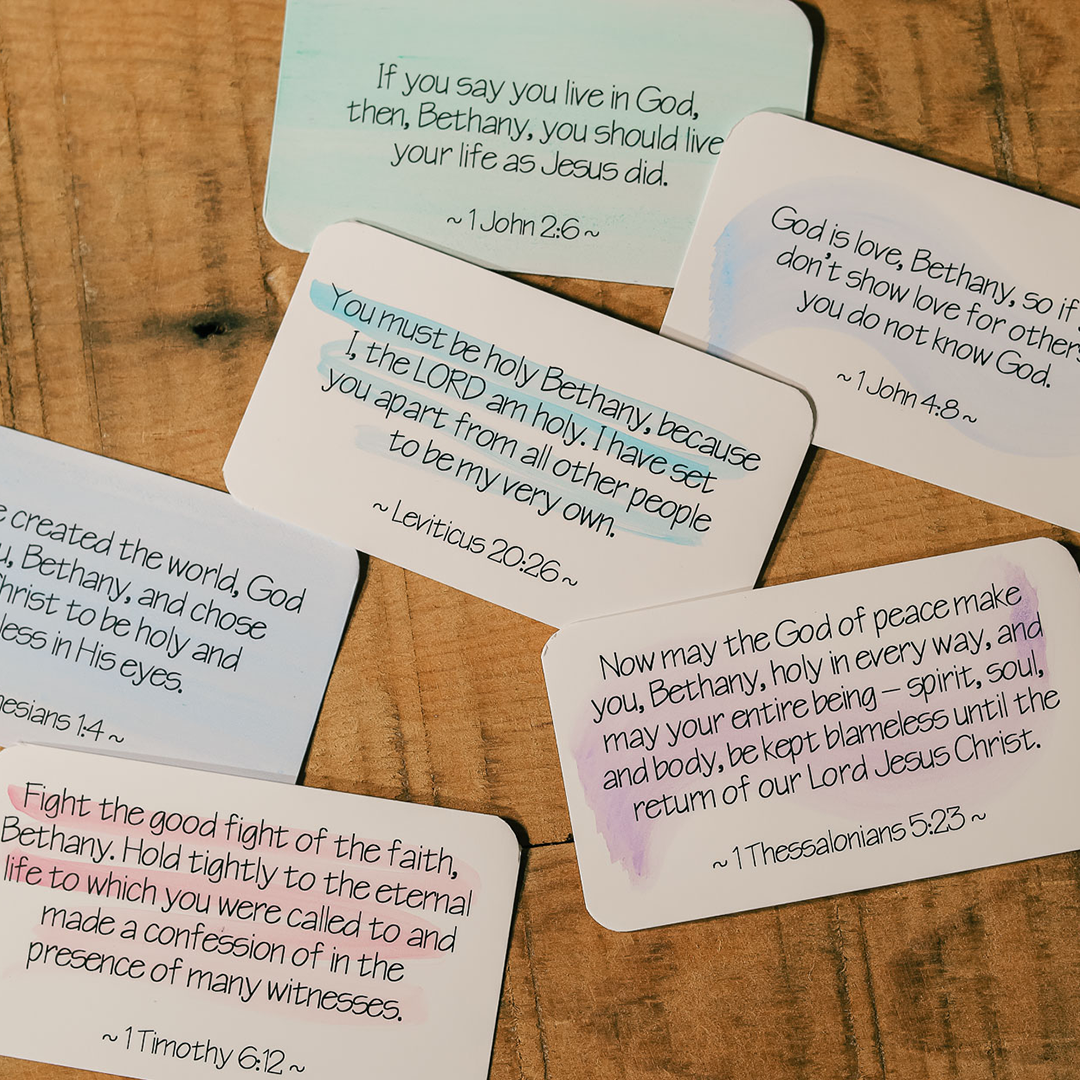 If you say you live in God,
then, Bethany, you should live
your life as Jesus did.
~ 1 John 2:6 ~
God is love, Bethany, so if
don't show love for others
you do not know God.
~ 1 John 4:8 ~
You must be holy Bethany, because
I, the LORD am holy. I have set
you apart from all other people
to be my very own.
~ Leviticus 20:26 ~
created the world, God
Bethany, and chose
Christ to be holy and
in His eyes.
1:4 ~
Now may the God of peace make
you, Bethany, holy in every way, and
may your entire being – spirit, soul,
and body, be kept blameless until the
return of our Lord Jesus Christ.
~ 1 Thessalonians 5:23 ~
Fight the good fight of the faith,
Bethany. Hold tightly to the eternal
life to which you were called to and
made a confession of in the
presence of many witnesses.
~ 1 Timothy 6:12 ~